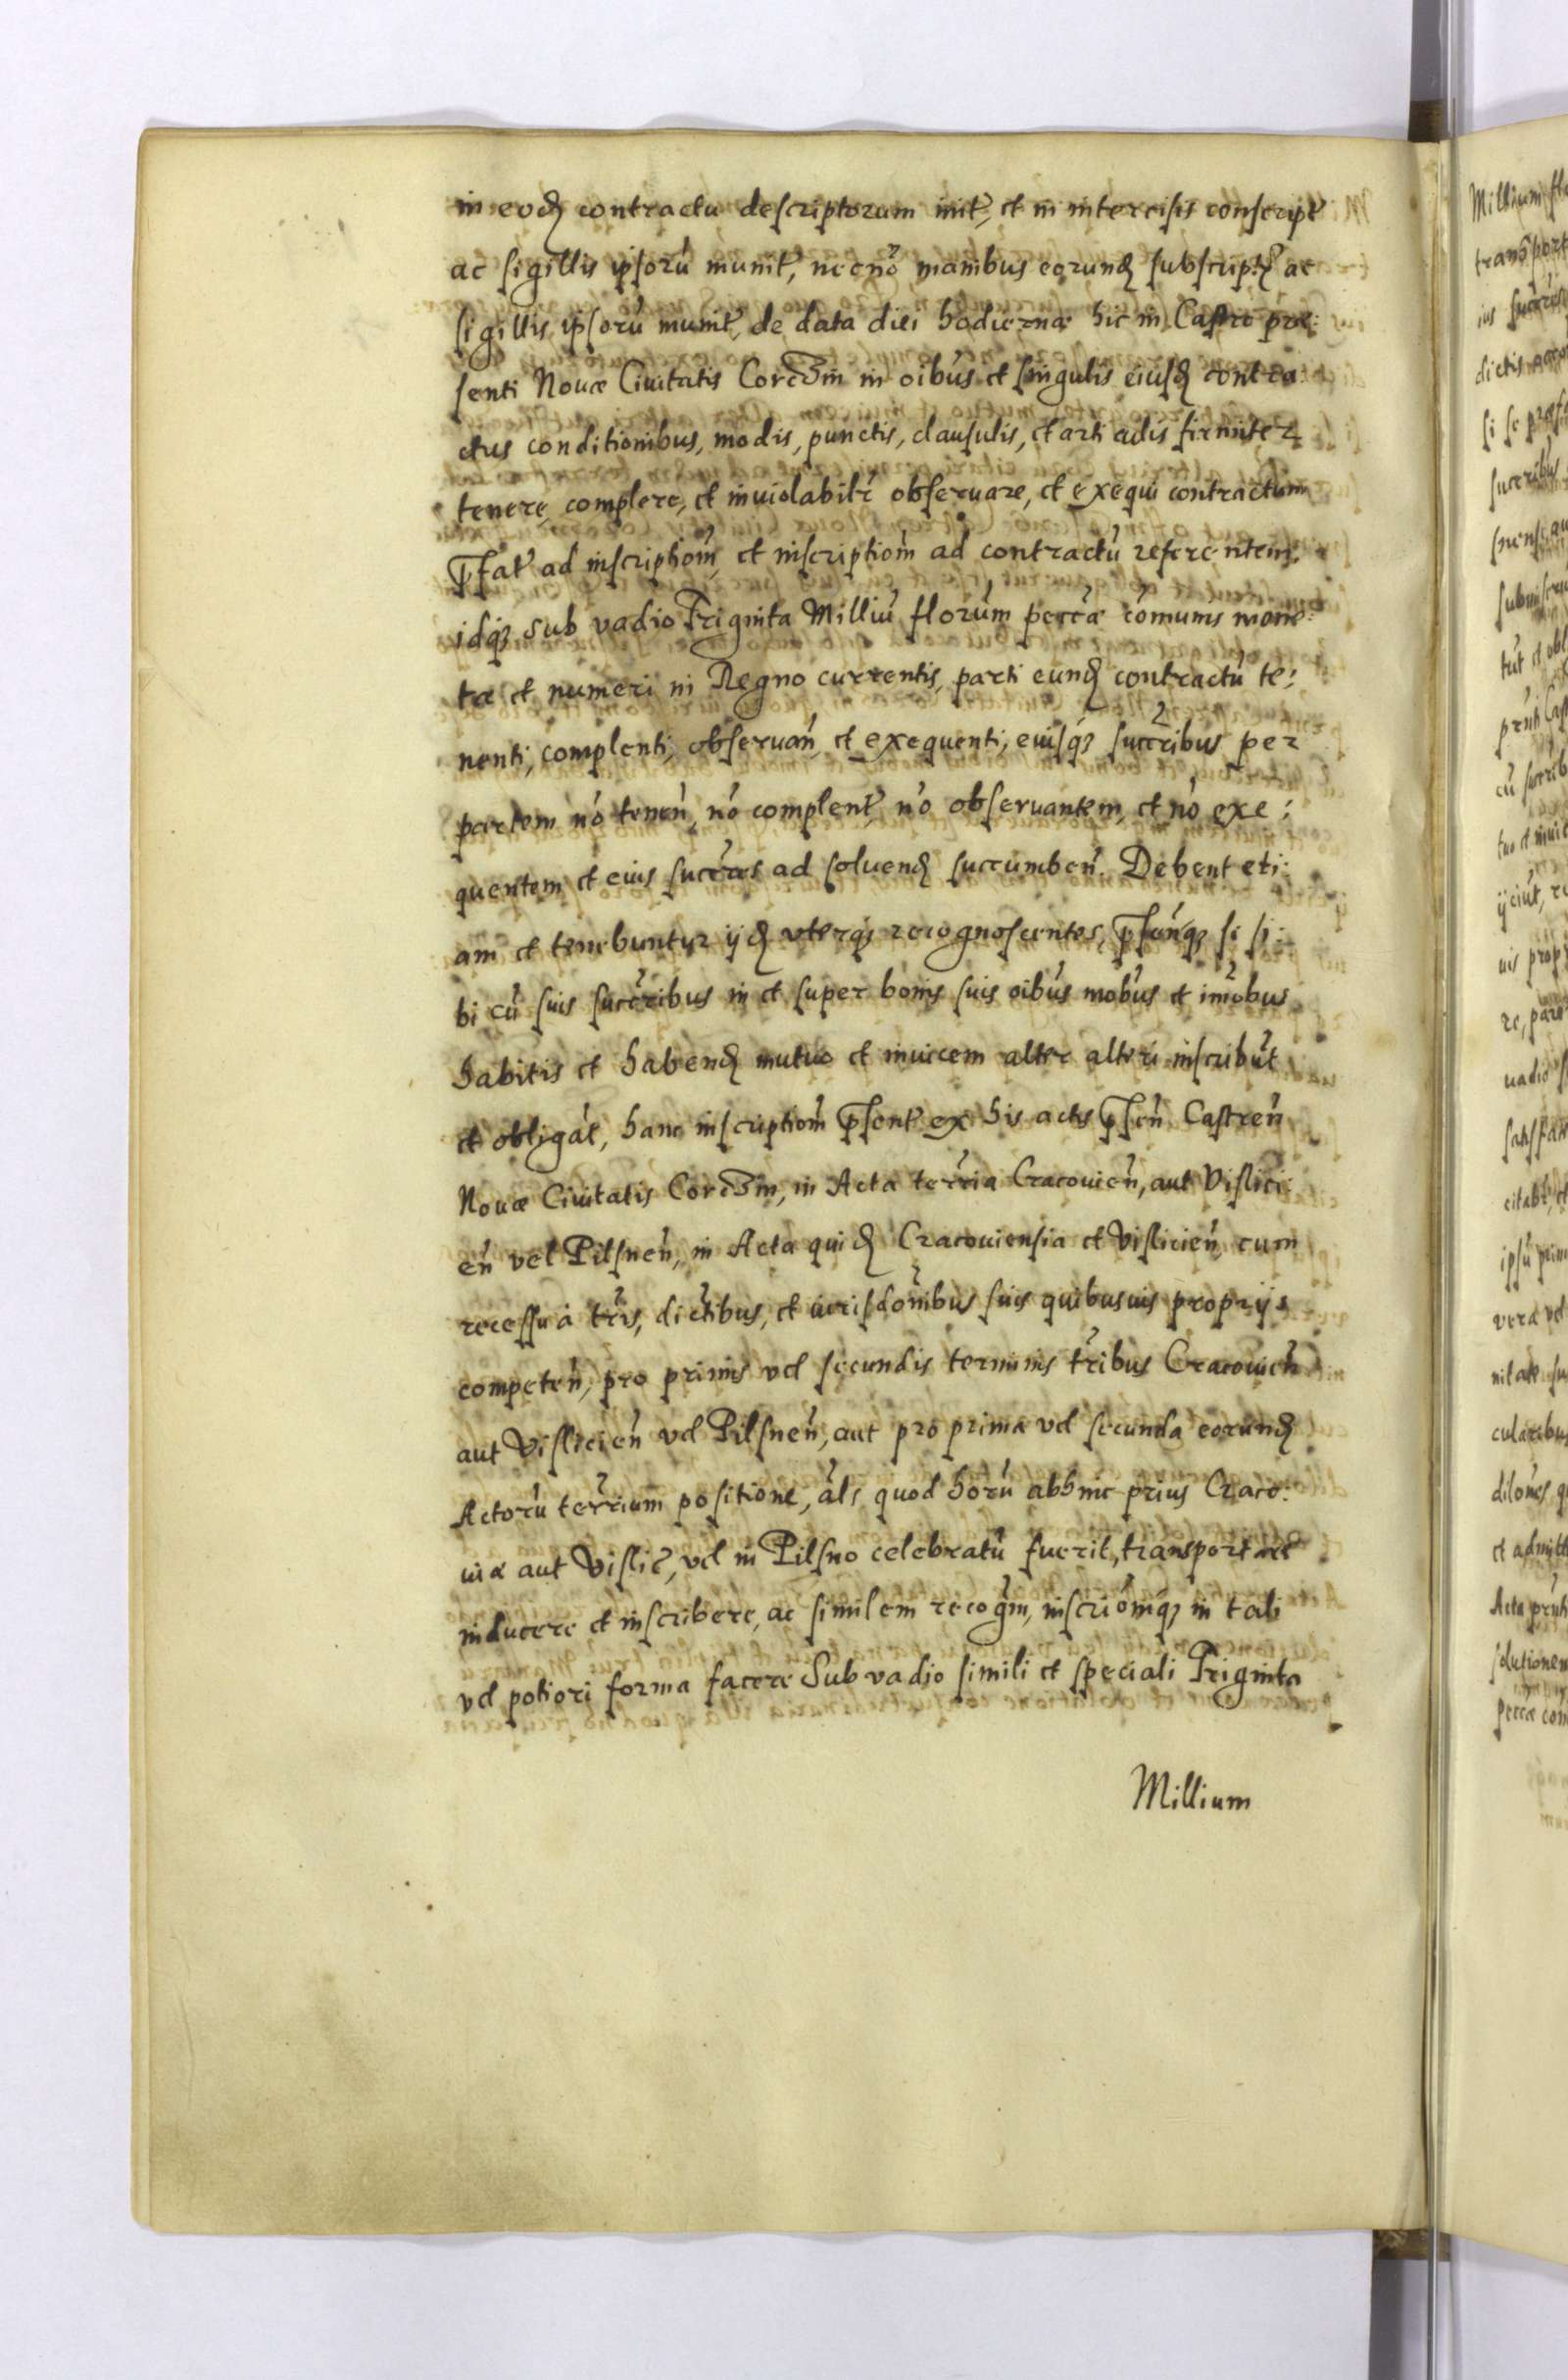 in eodꝫ contractu descriptorum init, et in intercisis conscript
ac sigillis ipsorū munit, necnō manibus eorundꝫ subscript ac
sigillis ipsorū munit, de data diei hodiernæ hic in Castro præ:
senti Nouæ Ciuitatis Corczin in oībus et singulis eiusdꝫ contra
ctus conditionibus, modis, punctis, clausulis, et articulis firmiter
tenere, complere, et inuiolabilr̄ obseruare, et exequi contractum
p̄fat ad inscriptiōm, et inscriptiōm ad contractū referentem.
idqꝫ sub vadio Triginta Milliū florūm pecc̄æ cōmunis mone:
tæ et numeri in Regno currentis, parti eundꝫ contractū te:
nenti, complenti, obseruan̄, et exequenti, eiusqꝫ succr̄ibus per
partem nō tenen̄, nō complent, nō obseruantem, et nō exe:
quentem et eius succr̄es ad soluendꝫ succumben̄. Debent eti:
am et tenebuntur ijdꝫ vterqꝫ recognoscentes, p̄sūnqꝫ se si:
bi cū suis succr̄ibus in et super bonis suis oībus mōbus et imōbus
habitis et habendꝫ mutuo et inuicem alter alteri inscribūt
et obligāt, hanc inscriptiōm p̄sent ex his actis p̄sēn Castren̄
Nouæ Ciuitatis Corczin, in Acta terr̄ia Cracouien̄, aut Vislici
en̄ vel Pilsnen̄, in Acta quidꝫ Cracouiensia et Vislicien̄ cum
recessu à tr̄is, dictībus, et iurisdōnibus suis quibusuis proprijs
competen̄, pro primis vel secundis terminis tr̄ibus Cracouien̄
aut Vislicien̄ vel Pilsnen̄, aut pro prima vel secunda eorundꝫ
Actorū terr̄ium positione, āls quod horū abhinc prius Craco:
uiæ aut Vislic, vel in Pilsno celebratū fuerit, transportare
inducere et inscribere, ac similem recogm̄, inscriōmqꝫ in tali
vel potiori forma facere Sub vadio simili et speciali Triginta
Millium